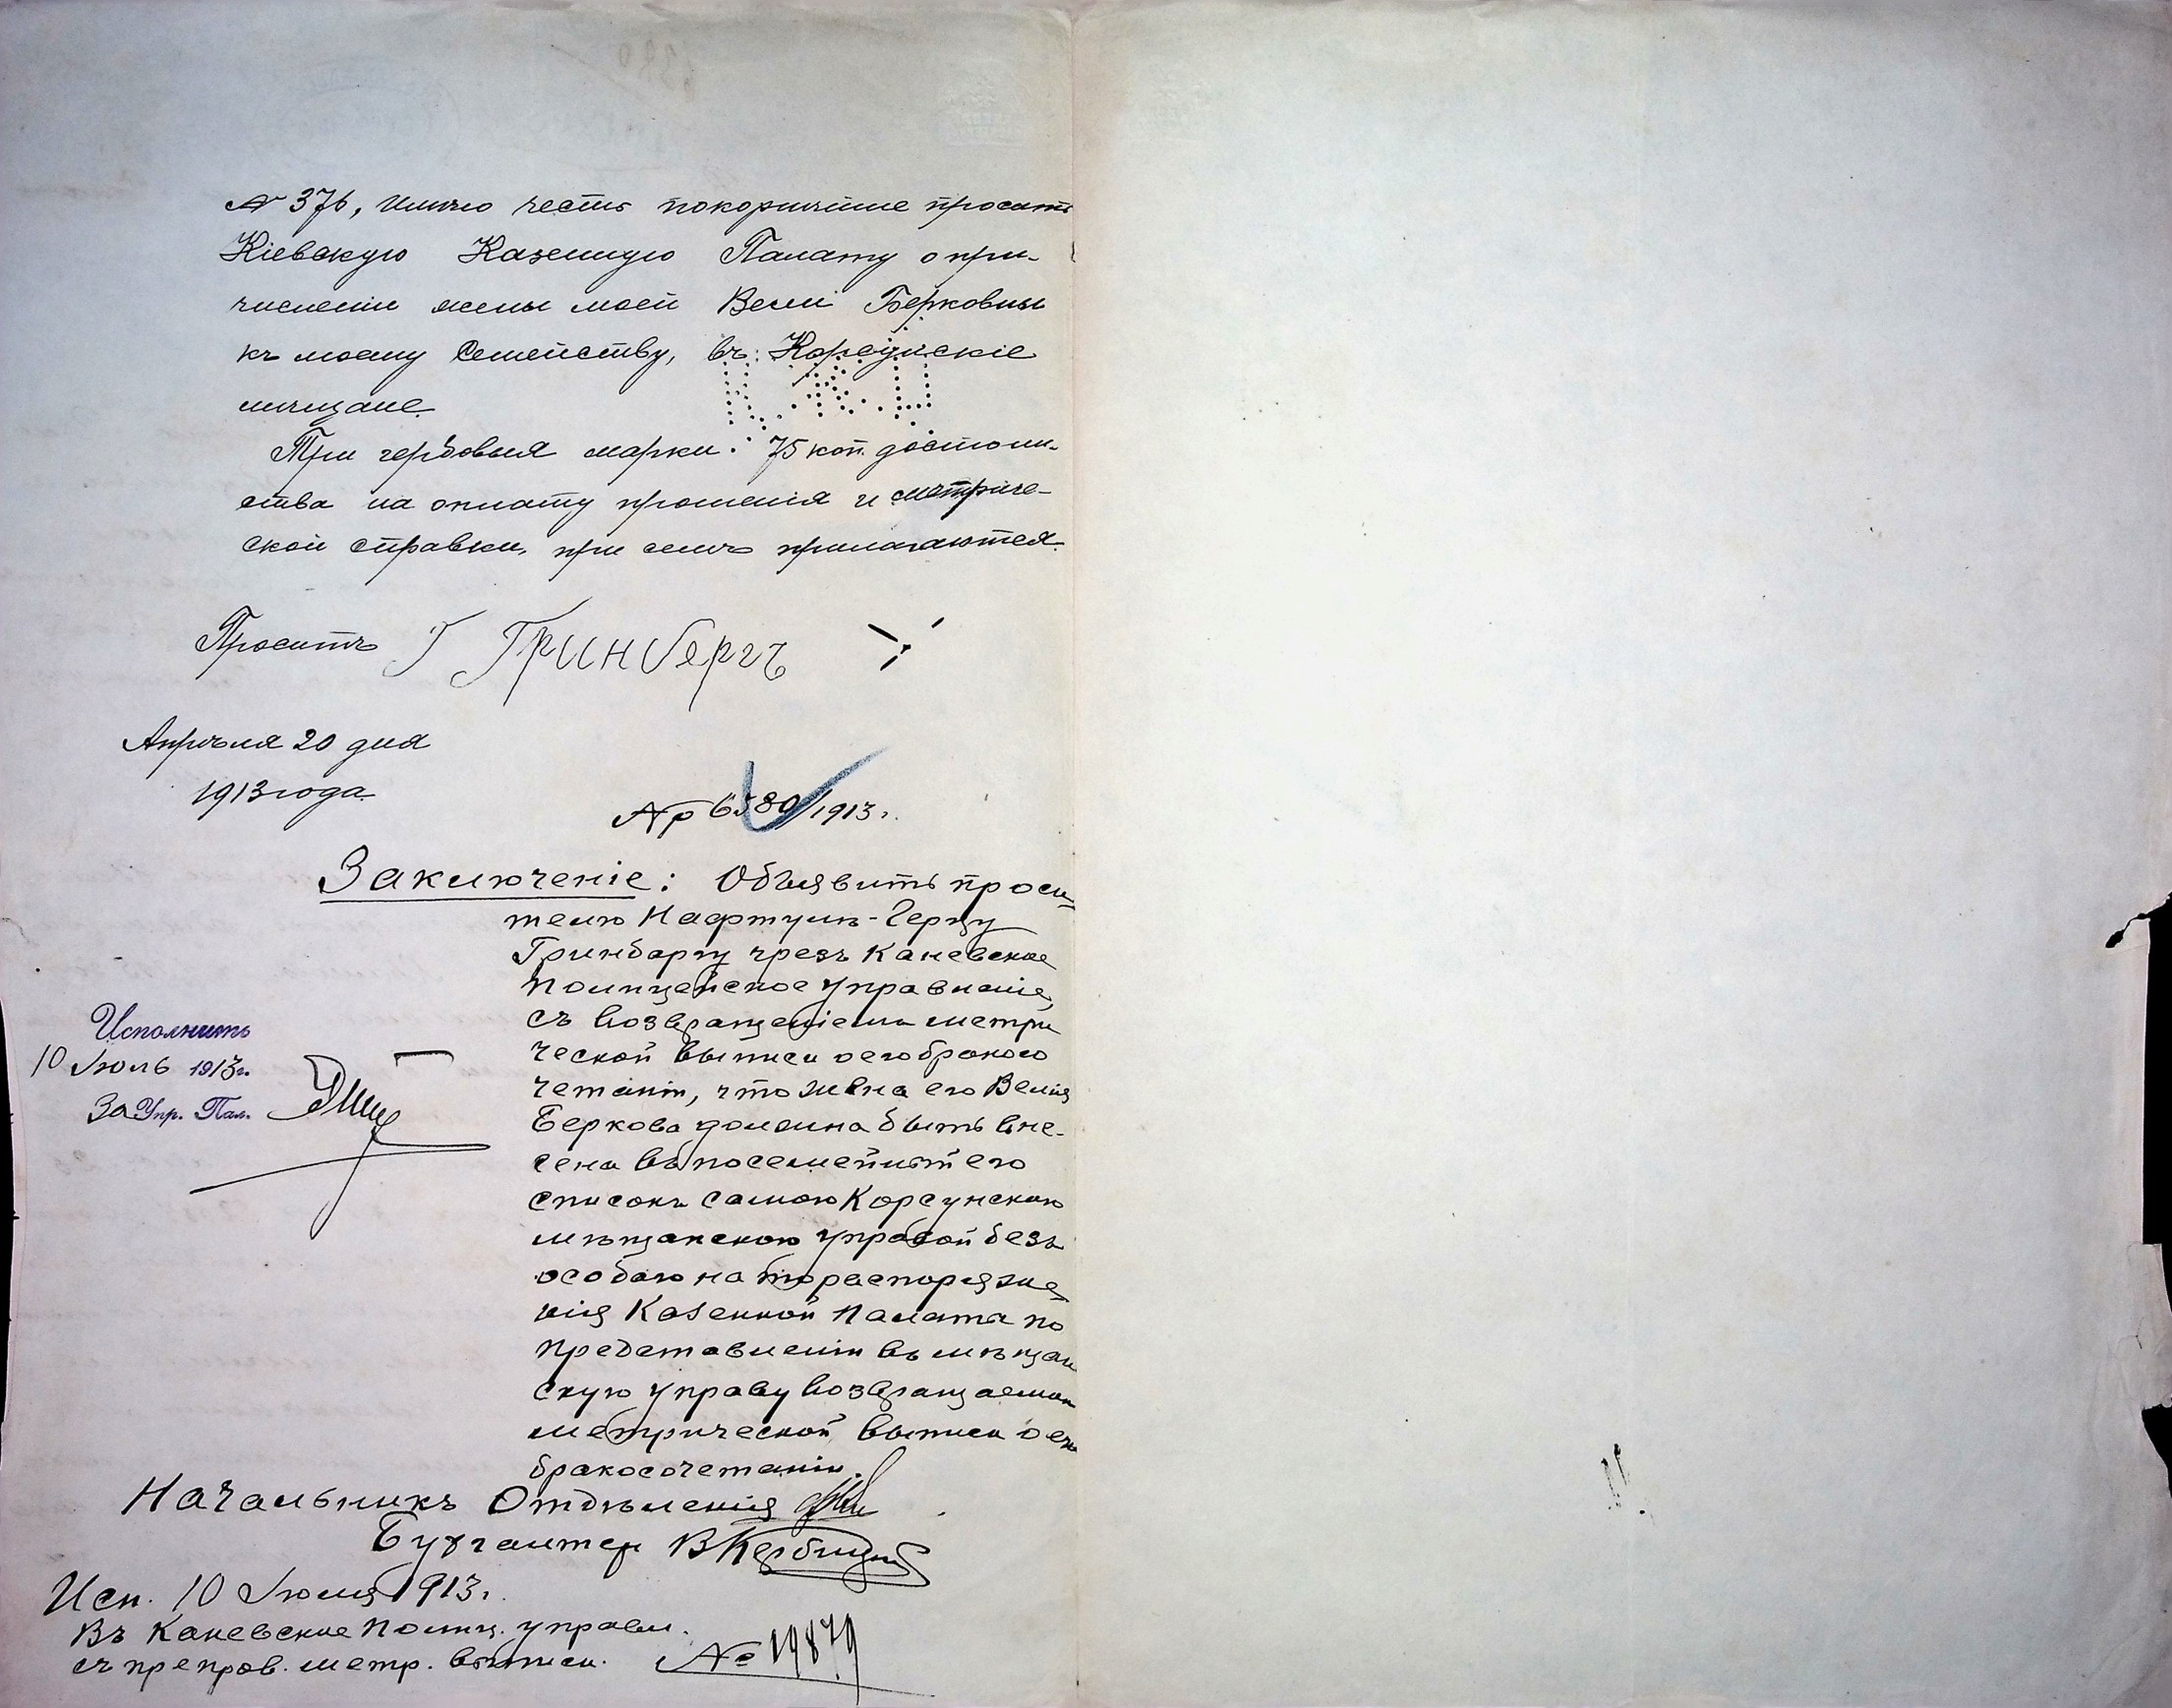 № 376, имѣю честь покорнѣйше просить
Кіевскую Казенную Палату о при-
численіи жены моей Велии Берковны
къ моему семейству, въ Корсунскіе
мѣщане.
Три гербовыя марки 75 коп. достоин-
ства на оплату прошенія и метриче-
ской справки, при семъ прилагаются.
Проситъ Г Гринбергъ
Апрѣля 20 дня
1913 года.
№ 6380/1913 г.
Заключеніе: Объявить проси-
телю Нафтулѣ-Герцу
Гринбаргу чрезъ Каневское
Полицейское Управленіе,
съ возвращеніемъ метри
ческой выписи о его бракосо
четаніи, что жена его Велия
Беркова должна быть вне-
сена въ посемейный его
списокъ самою Корсунскою
мѣщанскою управой безъ
особаго на то распоряже
нія Казенной Палаты по
представленіи въ мѣщан
скую управу возвращаемой
метрической выписи о его
бракосочетаніи.
Исполнить
10 Іюль 1913 г.
За Упр. Пал.
Начальникъ Отдѣленія
Бухгалтер В
Исп. 10 Іюля 1913 г.
Въ Каневское Полиц. управл.
съ препров. метр. выписи. № 19879